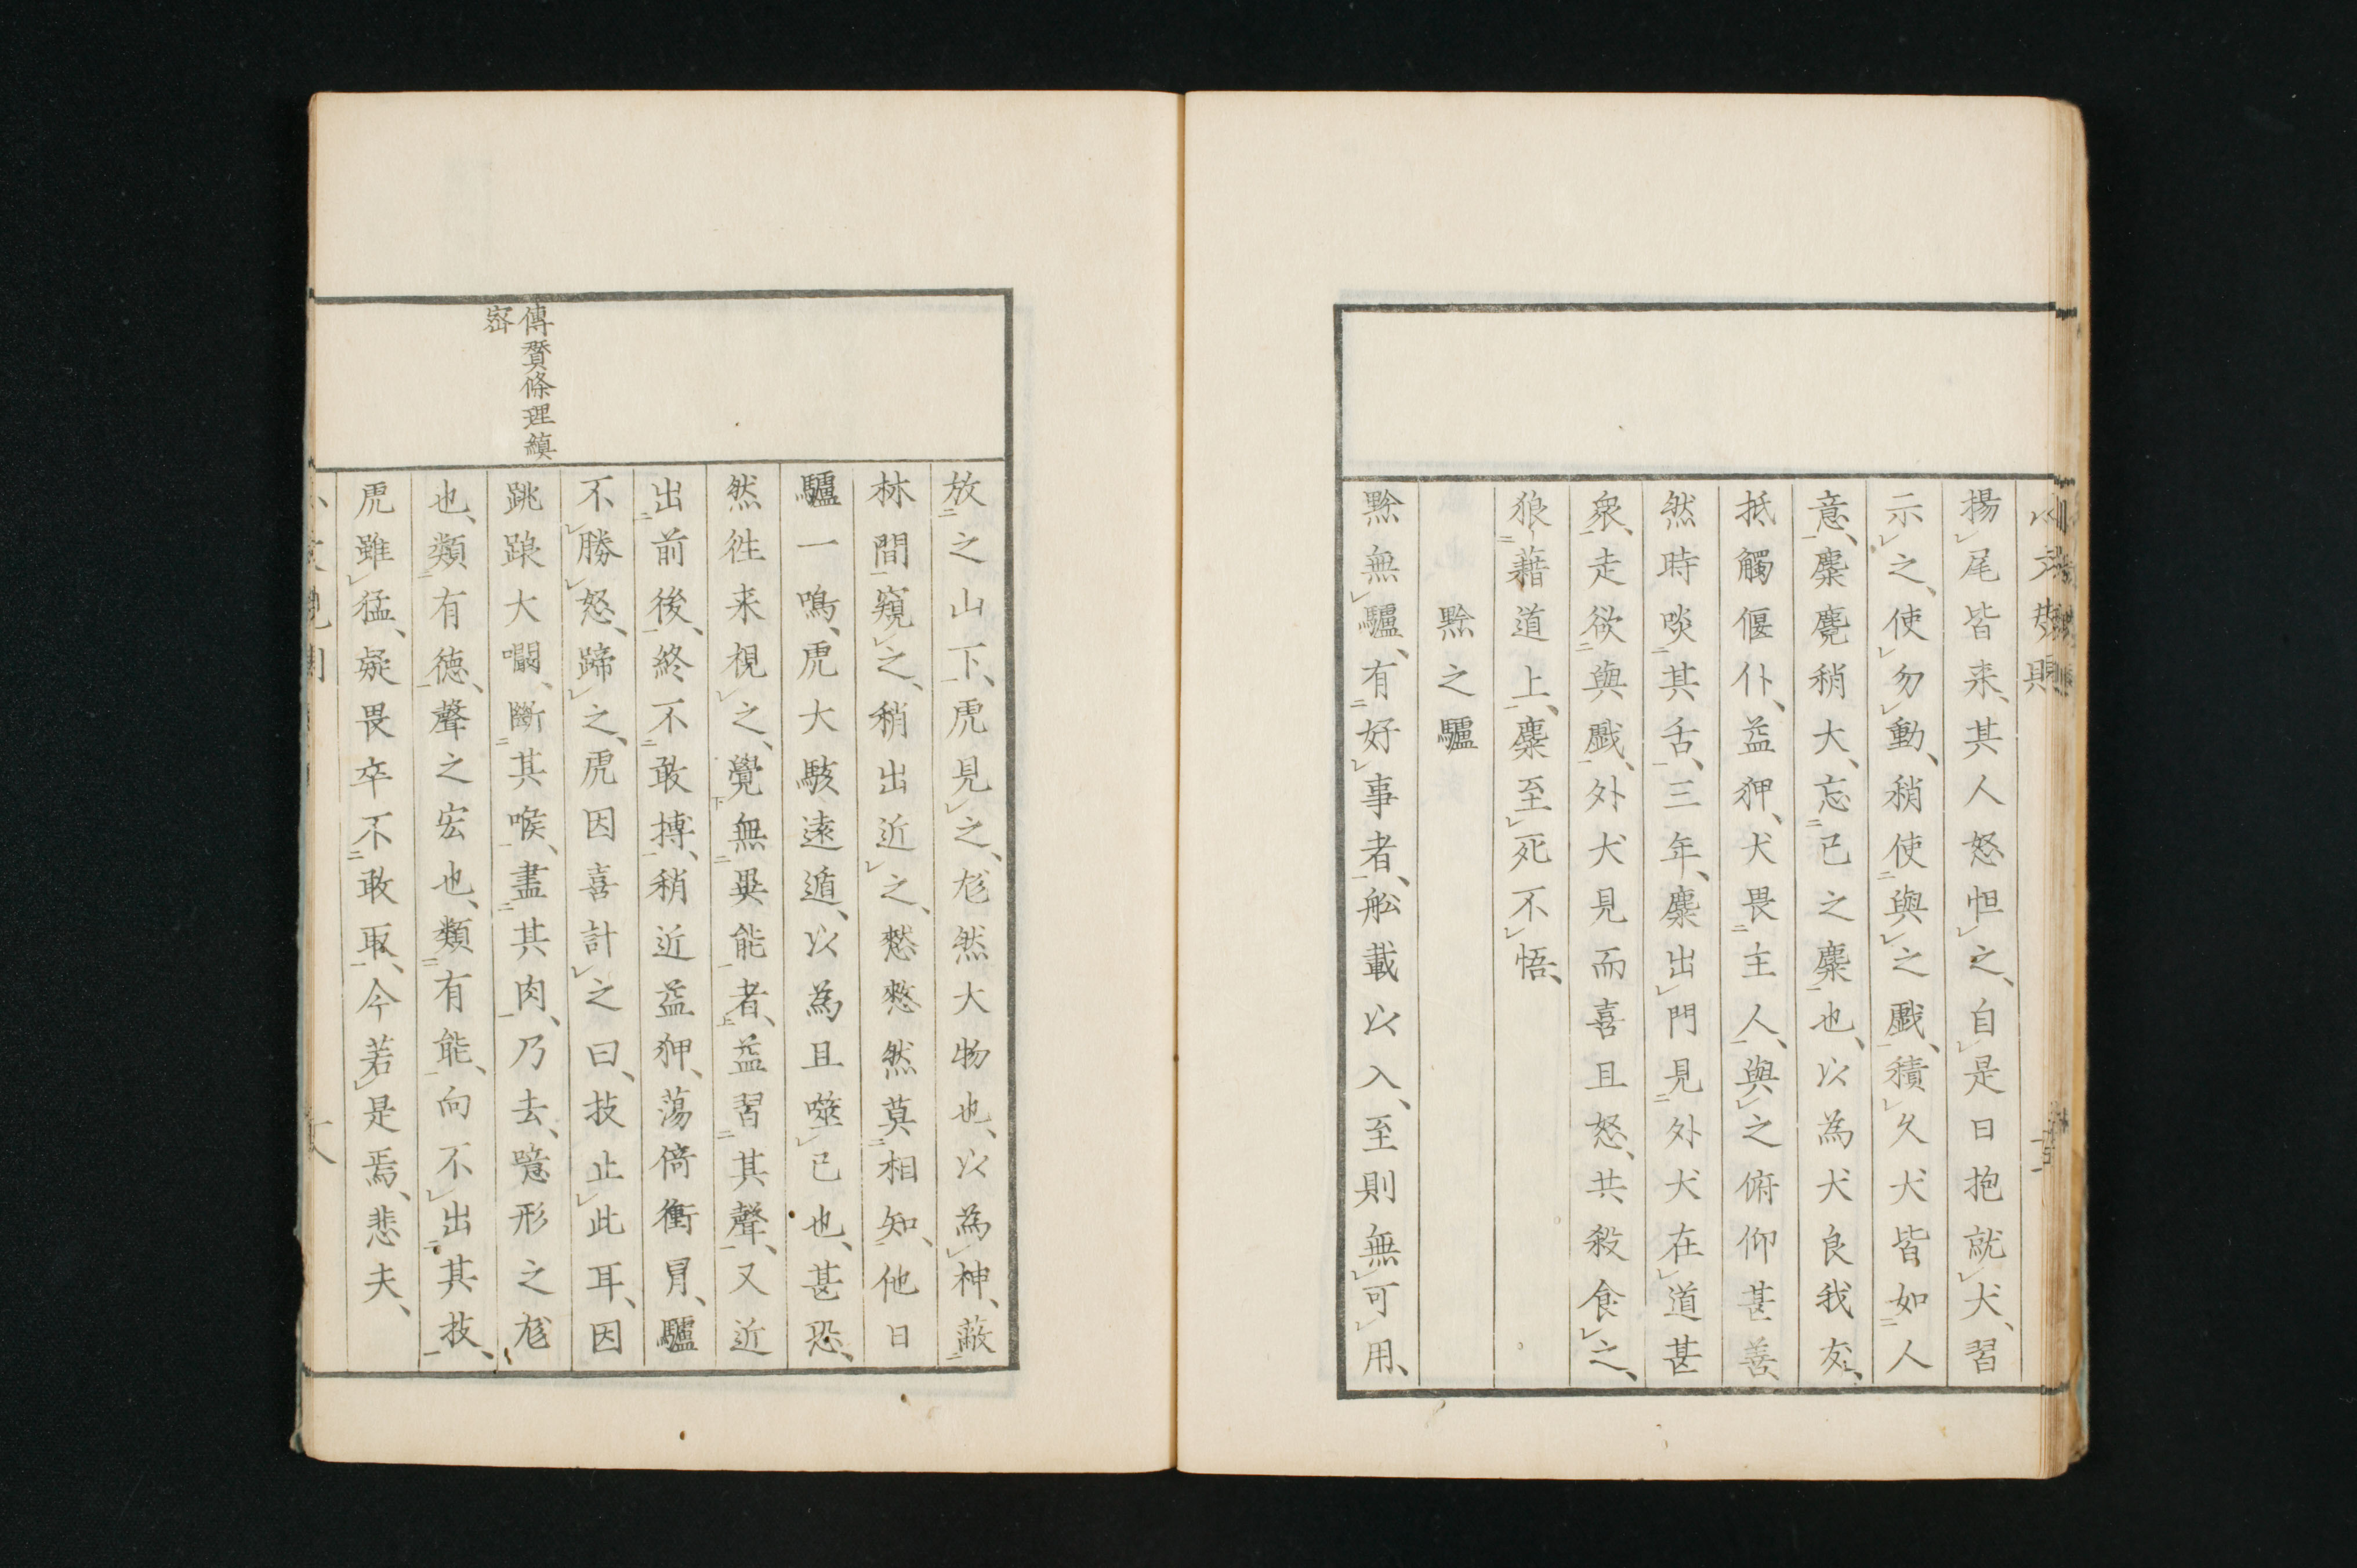 揚尾皆来、其人怒怛之、自是日抱就犬、習
示之、使勿動、稍使與之戲、積久犬皆如人
意、麋麑稍大、忘己之麋也、以為犬良我友、
抵觸偃仆、益狎、犬畏主人、與之俯仰甚善、
然時啖其舌、三年、麋出門見外犬在道甚
衆、走欲與戲、外犬見而喜且怒、共殺食之、
狼藉道上、麋至死不悟、
黔之驢
黔無驢、有好事者、舩載以入、至則無可用、
放之山下、虎見之、尨然大物也、以為神、蔽
林間窺之、稍出近之、憖憖然莫相知、他日
驢一鳴、虎大駭遠遁、以為且噬已也、甚恐、
然往来視之、覺無異能者、益習其聲、又近
出前後、終不敢搏、稍近益狎、蕩倚衝冒、驢
不勝怒、蹄之、虎因喜計之曰、技止此耳、因
跳踉大㘎、斷其喉、盡其肉、乃去、噫形之尨
也、類有徳、聲之宏也、類有能、向不出其技、
虎雖猛、疑畏卒不敢取、今若是焉、悲夫、
傳賛條理縝
密